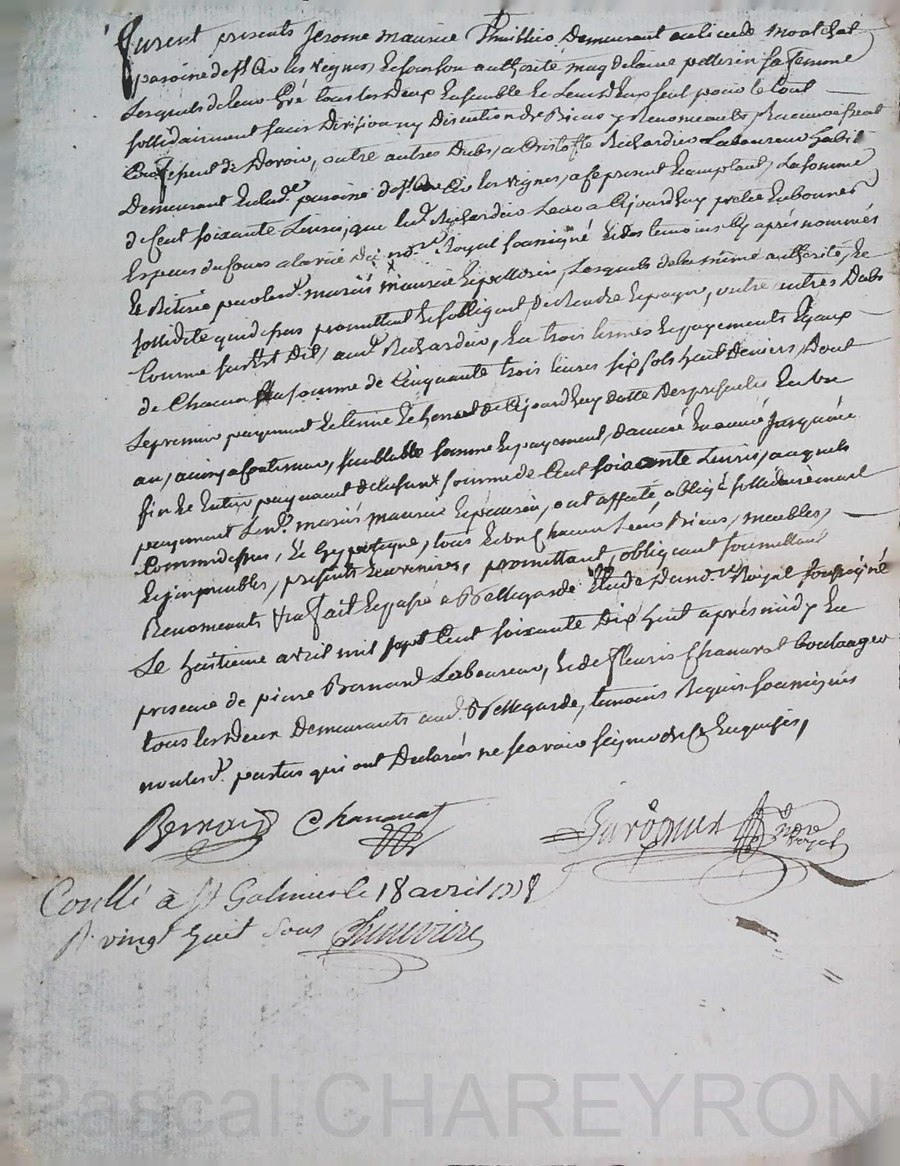 furent presents Jerome Maurice thuillier Demeurant au lieu de Montchat
paroisse de st Cir les vignes, et de son authorité magdelaine pellerin sa femme
Lesquels de leur Gré tous les deux Ensemble et L'un d'Eux seul pour le tout
sollidairement sans Division ny Discution de Biens y Renonceants, Reconnoissent
Confessent et Devoir, outre autres Dubs, a Cristofle Richardier Laboureur habit
Demeurant En lad.e paroisse de st Cir les vignes, a ce present Acceptant, La somme
de Cent soixante Livres, que led. Richardier Leur a Ajourdhuy pretée En bonnes
Especes du Cours a la vüe du no.re Royal soussigné Et des temoins Cy aprés nommés
Et Retirée par lesd. mariés maurice Et pellerin, Lesquels de la même authorité, Et
sollidité que dessus promettent Et s'obligent, de Rendre Et payer, outre autres Dubs
Comme sus Est Dit, aud. Richardier, En trois termes Et payements Egaux
de Chacun La somme de Cinquante trois livres six sols huit Deniers, Dont
Le premier payement Et terme Et de Ajourdhuy datte Des presentes En un
an, ainsy a Continuer, semblable somme Et payement, d'année En année Jusqu'au
fin Et Entier payement de la susd. somme de Cent soixante Livres, auquels
payement Lesd. mariés maurice Et pellerin, ont affecté, obligé sollidairement
Comme dessus, Et hypotequé, tous Et un Chacun Leurs Biens, meubles,
Et immeubles, presents Et avenirs, promettant, obligeant soumettant
Renonceants &a fait Et passé a Bellegarde Etude Dud. no.re Royal soussigné
Le huitieme avril mil sept Cent soixante Dix huit aprés midy En
presence de pierre Bernard Laboureur, Et de fleuris Chanavat boulanger
tous les deux Demeurants aud. Bellegarde, temoins Requis soussignés
non lesd. parties qui ont Declarés ne scavoir signer de Ce Enquises,
Bernard Chanavat
no.re Royal
Conllé à St Galmier le 18 avril 1778
R. vingt huit sous
Pascal CHAREYRON